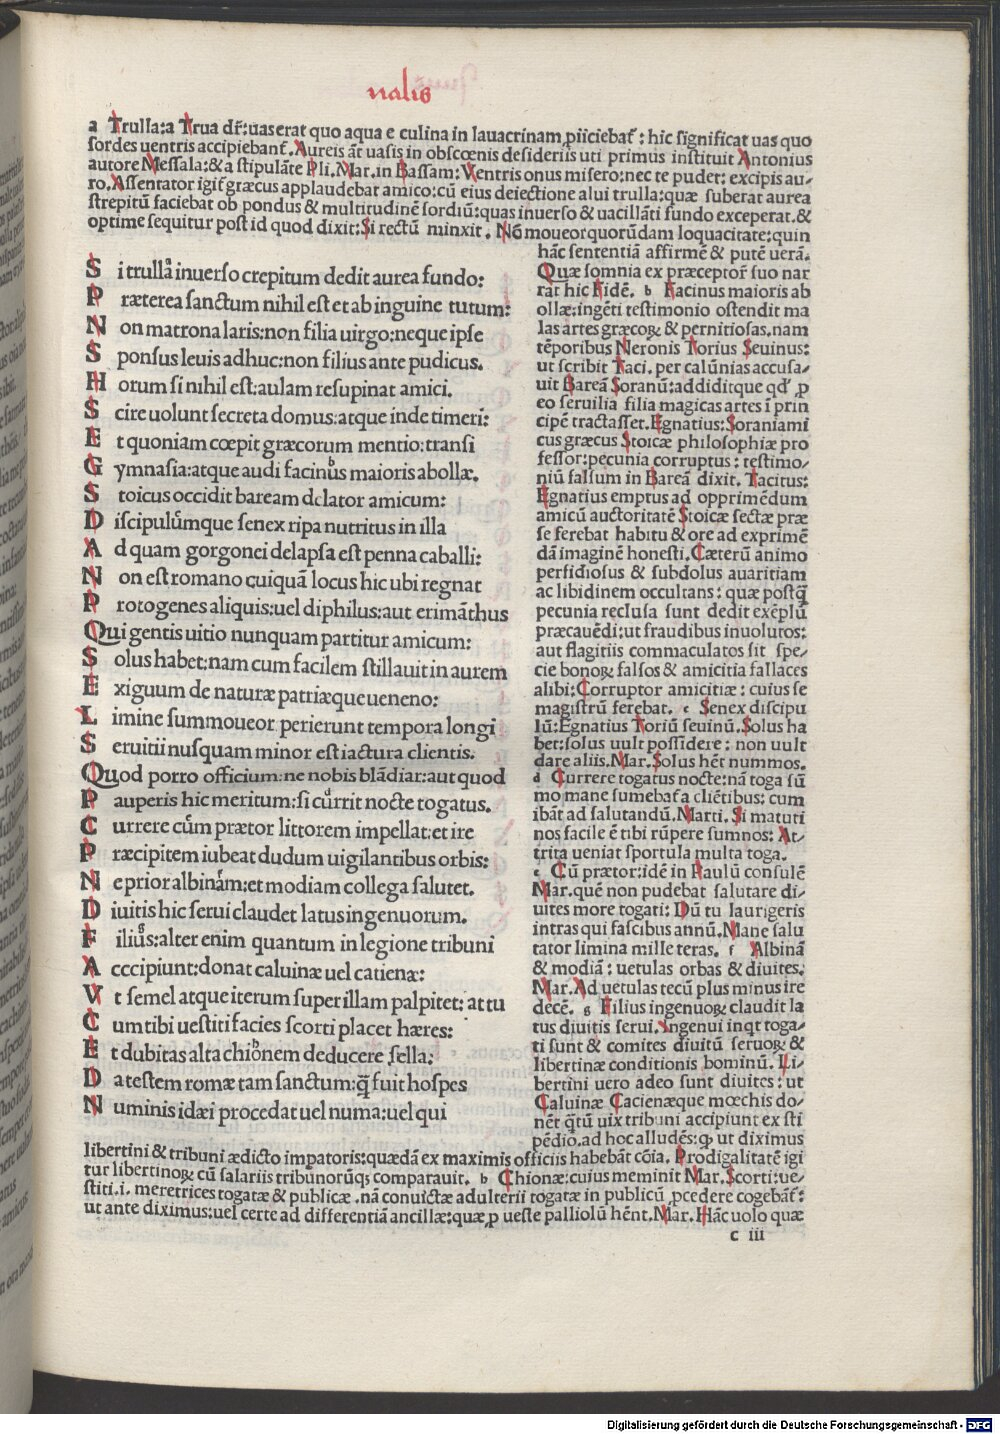 nalis
a Trulla:a Trua dr̃:uas erat quo aqua e culina in lauacrinam ꝓiiciebat̃: hic significat uas quo
sordes uentris accipiebant̃. Aureis ãt uasis in obscœnis desideriis uti primus instituit Antonius
autore Messala:& a stipulãte Pli. Mar. in Bassam: Ventris onus misero:nec te pudet: excipis au⸗
ro. Assentator igit̃ græcus applaudebat amico:cũ eius deiectione alui trulla:quæ suberat aurea
strepitũ faciebat ob pondus & multitudinẽ sordiũ:quas inuerso & uacillãti fundo exceperat.&
optime sequitur post id quod dixit:Si rectũ minxit. Nõ moueor quorũdam loquacitate:quin
S i trulla inuerso crepitum dedit aurea fundo:
P ræterea sanctum nihil est et ab inguine tutum:
N on matrona laris:non filia uirgo:neque ipse
S ponsus leuis adhuc:non filius ante pudicus.
H orum si nihil est:aulam resupinat amici.
S cire uolunt secreta domus:atque inde timeri:
E t quoniam cœpit græcorum mentio:transi
G ymnasia:atque audi facinus maioris abollæ.
S toicus occidit baream delator amicum:
D iscipulumque senex ripa nutritus in illa
A d quam gorgonei delapsa est penna caballi:
N on est romano cuiquã locus hic ubi regnat
P rotogenes aliquis:uel diphilus:aut erimãthus
Qui gentis uitio nunquam partitur amicum:
S olus habet:nam cum facilem stillauit in aurem
E xiguum de naturæ patriæque ueneno:
L imine summoueor perierunt tempora longi
S eruitii nusquam minor est iactura clientis.
Quod porro officium:ne nobis blãdiar:aut quod
P auperis hic meritum:si currit nocte togatus.
C urrere cum prætor littorem impellat:et ire
P ræcipitem iubeat dudum uigilantibus orbis:
N e prior albinam:et modiam collega salutet.
D iuitis hic serui claudet latus ingenuorum.
F ilius:alter enim quantum in legione tribuni
A cccipiunt:donat caluinæ uel catienæ:
V t semel atque iterum super illam palpitet: at tu
C um tibi uestiti facies scorti placet hæres:
E t dubitas alta chionem deducere sella:
D a testem romæ tam sanctum:q̃ fuit hospes
N uminis idæi procedat uel numa:uel qui
hãc sententiã affirmẽ & putẽ uerã.
Quæ somnia ex præceptor̃ suo nar
rat hic Fidẽ. b Facinus maioris ab
ollæ:ingẽti testimonio ostendit ma
las artes græcoꝝ & pernitiosas.nam
tẽporibus Neronis Torius Seuinus:
ut scribit Taci. per calũnias accusa⸗
uit Bareã Soranũ:addiditque qd̛ ꝓ
eo seruilia filia magicas artes ĩ prin
cipẽ tractasset. Egnatius: Sorani ami
cus græcus Stoicæ philosophiæ pro
fessor:pecunia corruptus: testimo⸗
niũ falsum in Bareã dixit. Tacitus:
Egnatius emptus ad opprimẽdum
amicũ auctoritatẽ Stoicæ sectæ præ
se ferebat habitu & ore ad exprimẽ
dã imaginẽ honesti. Cæterũ animo
perfidiosus & subdolus auaritiam
ac libidinem occultans: quæ postq̃
pecunia reclusa sunt dedit exẽplũ
præcauẽdi:ut fraudibus inuolutos:
aut flagitiis commaculatos sit spe⸗
cie bonoꝝ falsos & amicitia fallaces
alibi: Corruptor amicitiæ: cuius se
magistrũ ferebat. c Senex discipu
lũ:Egnatius Toriũ seuinũ. Solus ha
bet:solus uult possidere: non uult
dare aliis. Mar. Solus hẽt nummos.
d Currere togatus nocte:nã toga sũ
mo mane sumebat̃ a cliẽtibus: cum
ibãt ad salutandũ. Marti. Si matuti
nos facile ẽ tibi rũpere sumnos: At⸗
trita ueniat sportula multa toga.
e Cũ prætor:idẽ in Paulũ consulẽ
Mar. quẽ non pudebat salutare di⸗
uites more togati: Dũ tu laurigeris
intras qui fascibus annũ. Mane salu
tator limina mille teras. f Albinã
& modiã: uetulas orbas & diuites.
Mar. Ad uetulas tecũ plus minus ire
decẽ. g Filius ingenuoꝝ claudit la
tus diuitis serui. Ingenui inqt toga⸗
ti sunt & comites diuitũ seruoꝝ &
libertinæ conditionis hominũ. Li⸗
bertini uero adeo sunt diuites: ut
Caluinæ Cacienæque mœchis do⸗
nẽt q̃tũ uix tribuni accipiunt ex sti
pẽdio.ad hoc alludẽs:ꝙ ut diximus
libertini & tribuni ædicto impatoris:quædã ex maximis officiis habebãt cõia. Prodigalitatẽ igi
tur libertinoꝝ cũ salariis tribunorũq; comparauit. h Chionæ:cuius meminit Mar. Scorti:ue⸗
stiti.i. meretrices togatæ & publicæ .nã conuictæ adulterii togatæ in publicũ ꝓcedere cogebãt̃:
ut ante diximus:uel certe ad differentiã ancillæ:quæ ꝓ ueste palliolũ hẽnt. Mar. Hãc uolo quæ
c iii
Digitalisierung gefördert durch die Deutsche Forschungsgemeinschaft - DFG